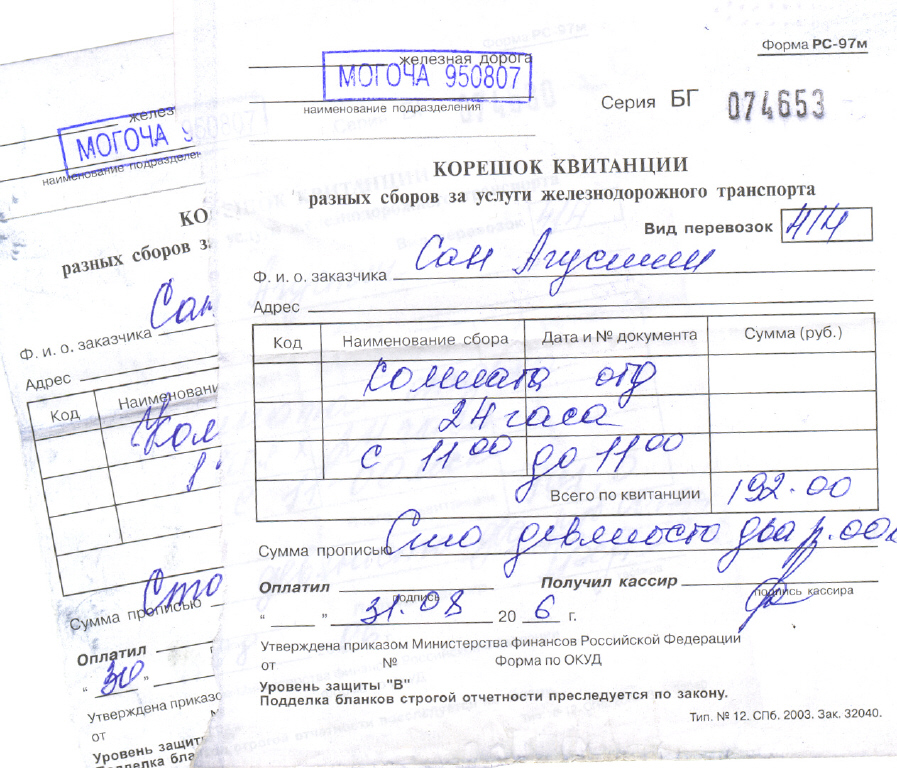 Форма РС-97м
железная дорога
МОГОЧА 950807
наименование подразделения
Серия БГ 074653
КОРЕШОК КВИТАНЦИИ
разных сборов за услуги железнодорожного транспорта
Вид перевозок
Ф. и. о. заказчика Сан Агустин
Адрес
Код Наименование сбора Дата и № документа Сумма (руб.)
комната отд
24 часа
с 11 00 до 11 00
Всего по квитанции 192-00
Сумма прописью Сто девяносто два р. 00к
Оплатил Получил кассир
подпись подпись кассира
“ ” 31.08 20 6 г.
Утверждена приказом Министерства финансов Российской Федерации
от № Форма по ОКУД
Уровень защиты "В"
Подделка бланков строгой отчетности преследуется по закону.
Тип. № 12. СПб. 2003. Зак. 32040.
желез
МОГОЧА 950807
наименование подразделен
КО
разных сборов з
Ф. и. о. заказчика Сан
Адрес
Код Наименовани
Ком
Сумма прописью Сто
Оплатил
“ 30 ”
Утверждена приказо
от
Уровень защит
Подделка бла